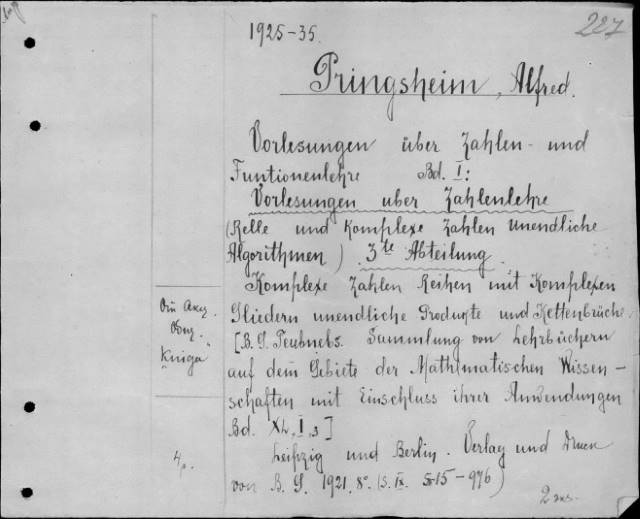 1925-35.
227
Pringsheim, Alfred.
Vorlesungen über Zahlen- und
Funtionenlehre Bd. I:
Vorlesungen uber Zahlenlehre
(Relle und Komplexe Zahlen Unendliche
Algorithmen) 3te Abteilung
Komplexe Zahlen Reihen mit Komplexen
Gliedern unendliche Produqte und Kettenbrüche.
[B. G. Teubnebs. Sammlung von Lehrbüchern
auf dem Gebiete der Mathimatischen Wissen-
schaften mit Einschluss ihrer Anwendungen
Bd. XL, I, 3]
Leipzig und Berlin. Verlag und Druck
von B. G. 1921. 8°. (S. IX. 515-976)
Kniga
4 р.
2 экз.